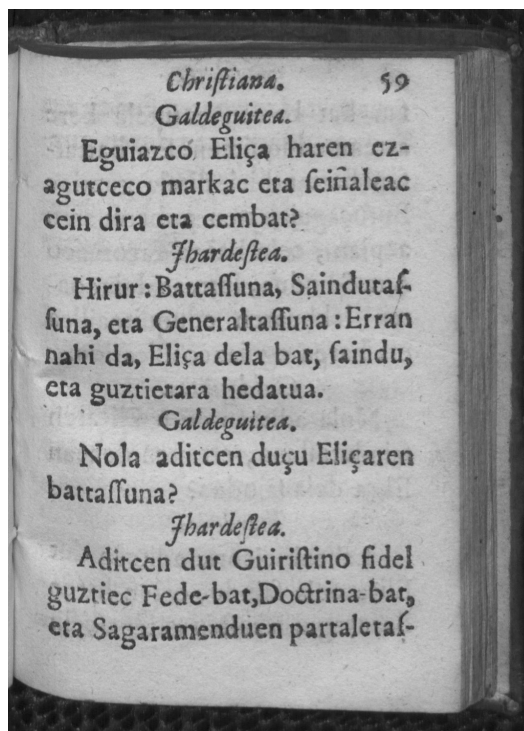 Chriſtiana. 59
Galdeguitea.
Eguiazco Eliça haren ez-
agutceco markac eta ſeiñaleac
cein dira eta cembat?
Jhardeſtea.
Hirur : Battaſſuna, Saindutaſ-
ſuna, eta Generaltaſſuna : Erran
nahi da, Eliça dela bat, ſaindu,
eta guztietara hedatua.
Galdeguitea.
Nola aditcen duçu Eliçaren
battaſſuna?
Jhardeſtea.
Aditcen dut Guiriſtino fidel
guztiec Fede-bat, Doctrina-bat,
eta Sagaramenduen partaletaſ-